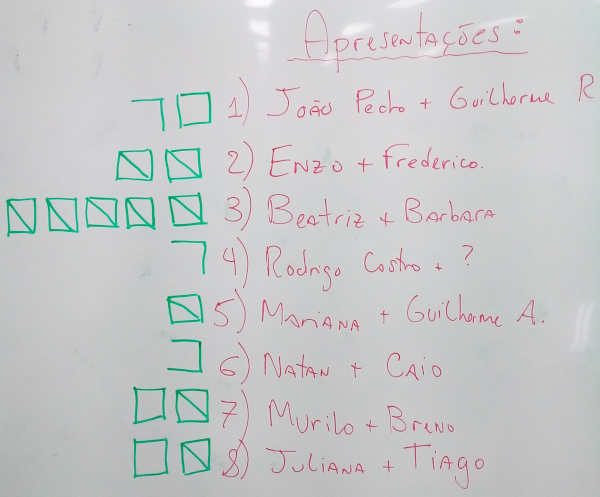 Apresentações:
1) João Pedro + Guilherme R
2) Enzo + Frederico.
3) Beatriz + Barbara
4) Rodrigo Castro + ?
5) Mariana + Guilherme A.
6) Natan + Caio
7) Murilo + Breno
8) Juliana + Tiago